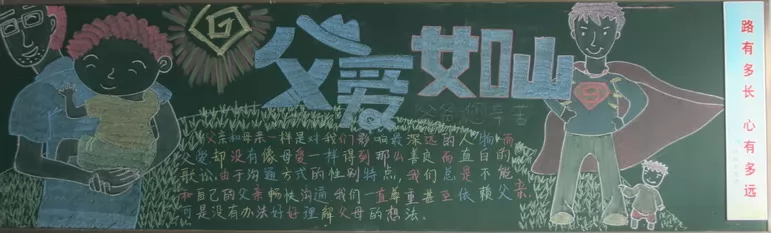 父爱如山
爸爸您辛苦
父亲和母亲一样是对我们影响最深远的人物而
父爱却没有像母爱一样得到那么善良而直白的
歌讼由于沟通方式的性别特点，我们总是不能
和自己的父亲畅快沟通我们一直尊重甚至依赖父亲
可是没有办法好好理解父母的想法。
路有多长 心有多远